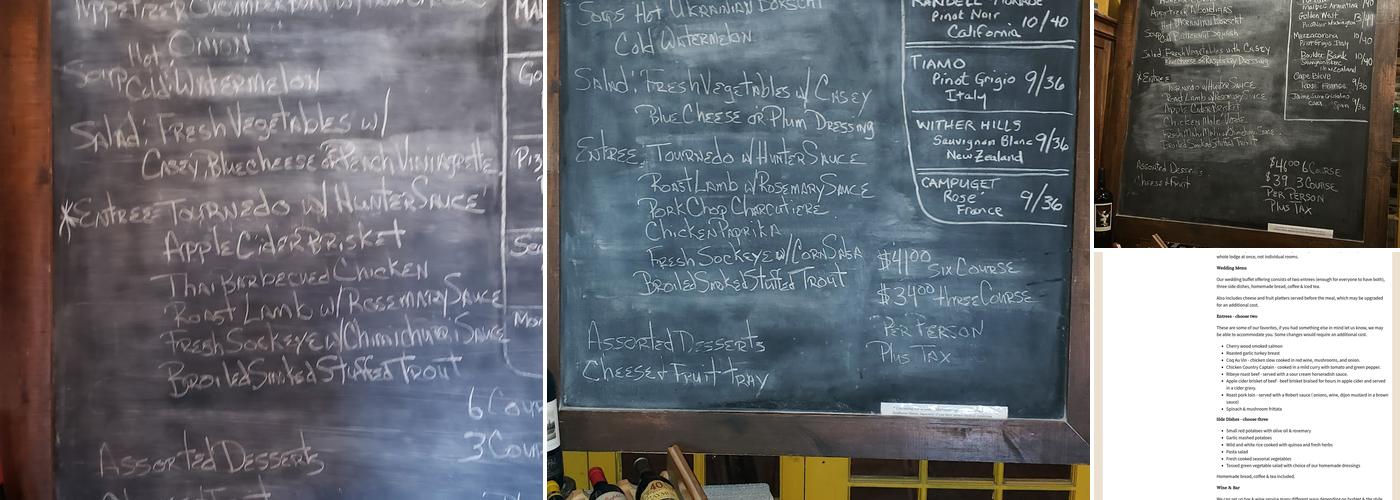 Appetizer Cucumber
MAL
Hot Onion
Soup Cold Watermelon
Go
Salad: Fresh Vegetables w/
Casey, Bluecheese or Peach Viniagrette
*Entree Tournedo w/ Hunter Sauce
Apple Cider Brisket
Thai Barbecued Chicken
Roast Lamb w/ Rosemary Sauce
Fresh Sockeye w/ Chimichurri Sauce
Broiled Smoked Stuffed Trout
6 Cour
3 Cour
Assorted Desserts
Soups Hot Ukrainian Borscht
Cold Watermelon
Salad: Fresh Vegetables w/ Casey
Blue Cheese or Plum Dressing
Entree: Tournedo w/ Hunter Sauce
Roast Lamb w/ Rosemary Sauce
Pork Chop Charcutiere
Chicken Paprika
Fresh Sockeye w/ Corn Salsa
Broiled Smoked Stuffed Trout
Assorted Desserts
Cheese & Fruit Tray
Pinot Noir
California 10/40
TIAMO
Pinot Grigio 9/36
Italy
WITHER HILLS
Sauvignon Blanc 9/36
New Zealand
CAMPUGET
Rose 9/36
France
$41.00 Six Course
$34.00 three Course
Per Person
Plus Tax
Salad Fresh Vegetables with Casey
Bluecheese or Raspberry Dressing
*Entree
Tournedo w/ Hunter Sauce
Roast Lamb w/ Rosemary Sauce
Apple Cider Brisket
Chicken Mole Verde
Broiled Smoked Stuffed Trout
Assorted Desserts
Cheese & Fruit
Malbec Argentina
Golden West
Pinot Noir Washington
Mezzacorona 10/40
Pinot Grigio Italy
Boulder Bank 10/40
Sauvignon Blanc
New Zealand
Cape Bleue
Rose France 9/36
$46.00 6 Course
$39 3 Course
Per Person
Plus Tax
whole lodge at once, not individual rooms.
Wedding Menu
Our wedding buffet offering consists of two entrees (enough for everyone to have both),
three side dishes, homemade bread, coffee & iced tea.
Also includes cheese and fruit platters served before the meal, which may be upgraded
for an additional cost.
Entrees - choose two
These are some of our favorites, if you had something else in mind let us know, we may
be able to accommodate you. Some changes would require an additional cost.
• Cherry wood smoked salmon
• Roasted garlic turkey breast
• Coq Au Vin - chicken slow cooked in red wine, mushrooms, and onion.
• Chicken Country Captain - cooked in a mild curry with tomato and green pepper.
• Ribeye roast beef - served with a sour cream horseradish sauce.
• Apple cider brisket of beef - beef brisket braised for hours in apple cider and served
in a cider gravy.
• Roast pork loin - served with a Robert sauce ( onions, wine, dijon mustard in a brown
sauce)
• Spinach & mushroom frittata
Side Dishes - choose three
• Small red potatoes with olive oil & rosemary
• Garlic mashed potatoes
• Wild and white rice cooked with quinoa and fresh herbs
• Pasta salad
• Fresh cooked seasonal vegetables
• Tossed green vegetable salad with choice of our homemade dressings
Homemade bread, coffee & tea included.
Wine & Bar